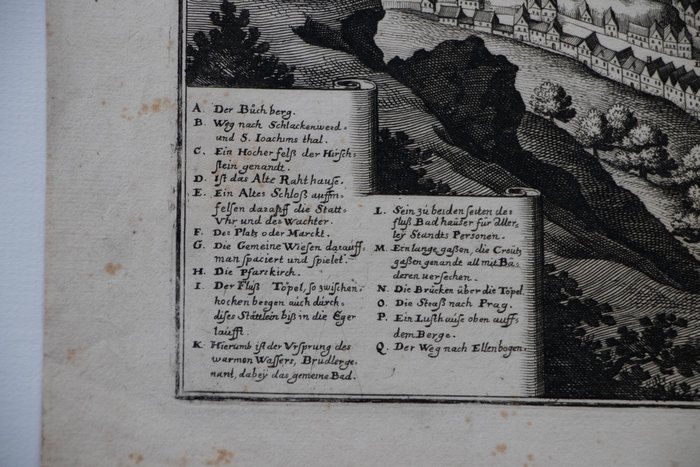 A. Der Bůchberg.
B. Weg nach Schlackenwerd-
und S. Ioachims thal.
C. Ein Hocher felß der Hirsch-
stein genandt.
D. Ist das Alte Rahthause.
E. Ein Altes Schloß auffm-
felsen darauff die Statt-
Vhr und der Wachter.
F. Der Platz oder Marckt.
G. Die Gemeine Wiesen darauff,
man spaciert und spielet.
H. Die Pfarrkirch.
I. Der Fluß Töpel, so zwischen
hochen bergen auch durch-
dises Stättlein biß in die Eger
laufft.
K. Hierumb ist der Vrsprung des
warmen Wassers, Brüdler ge-
nant, dabey das gemeine Bad.
L. Sein zu beiden seiten des
fluß Bad haüser für aller-
ler Standts Personen.
M. Ein lange gaßen, die Creutz
gaßen genandt all mit Bä-
deren versechen.
N. Die Brücken über die Töpel
O. Die Straß nach Prag.
P. Ein Lusthause oben auff-
dem Berge.
Q. Der Weg nach Ellenbogen.